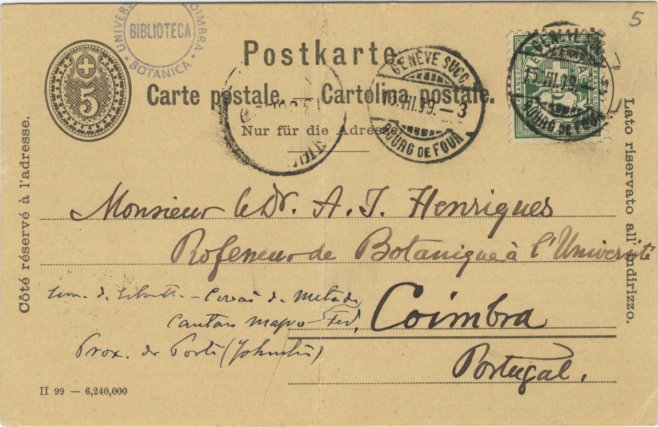 5
UNIVERS COIMBRA
BIBLIOTECA
BOTANICA
Postkarte.
Carte postale. Cartolina postale.
Nur für die Adresse.
5
GENÈVE SUCC.
15.III.99.–3
BOURG DE FOUR
15.III.99
BOURG DE FOUR
Côté réservé à l'adresse.
Lato riservato all'indirizzo.
Monsieur le Dr. A. J. Henriques
Professeur de Botanique à l'Université
Coimbra
Portugal.
de
Cantan
Prox. do Porto (Johnston)
II 99 — 6,240,000